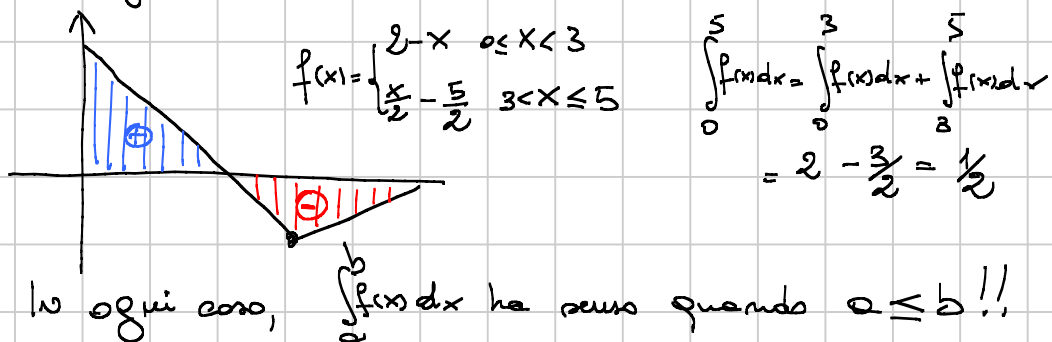 f(x) = { 2-x 0≤x<3
x/2 - 5/2 3<x≤5
∫₀⁵ f(x)dx = ∫₀³ f(x)dx + ∫₃⁵ f(x)dx
= 2 - 3/2 = 1/2
+
-
In ogni caso, ∫ₐᵇ f(x) dx ha senso quando a ≤ b!!